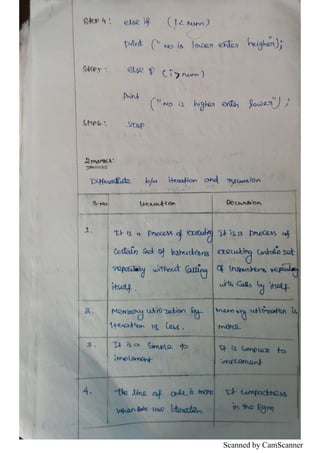 Step 4: else if (i < num)
print ("No is lower enter heigher);
Step 5: else if (i > num)
print ("No is higher enter lower");
Step 6: Stop
2 marks:
Differentiate b/w iteration and recursion
S.no Iteration Recursion
1. It is a Process of executing It is a process of
Certain Set of Instructions executing certain set
repeatedly without Calling of Instructions repeatedly
itself. with calls by itself.
2. Memory utilization by memory utilization is
Iteration is less. more
3. It is a Simple to It is complex to
implement implement
4. The line of code is more It compactness
when we use Iteration in the Pgm
Scanned by CamScanner